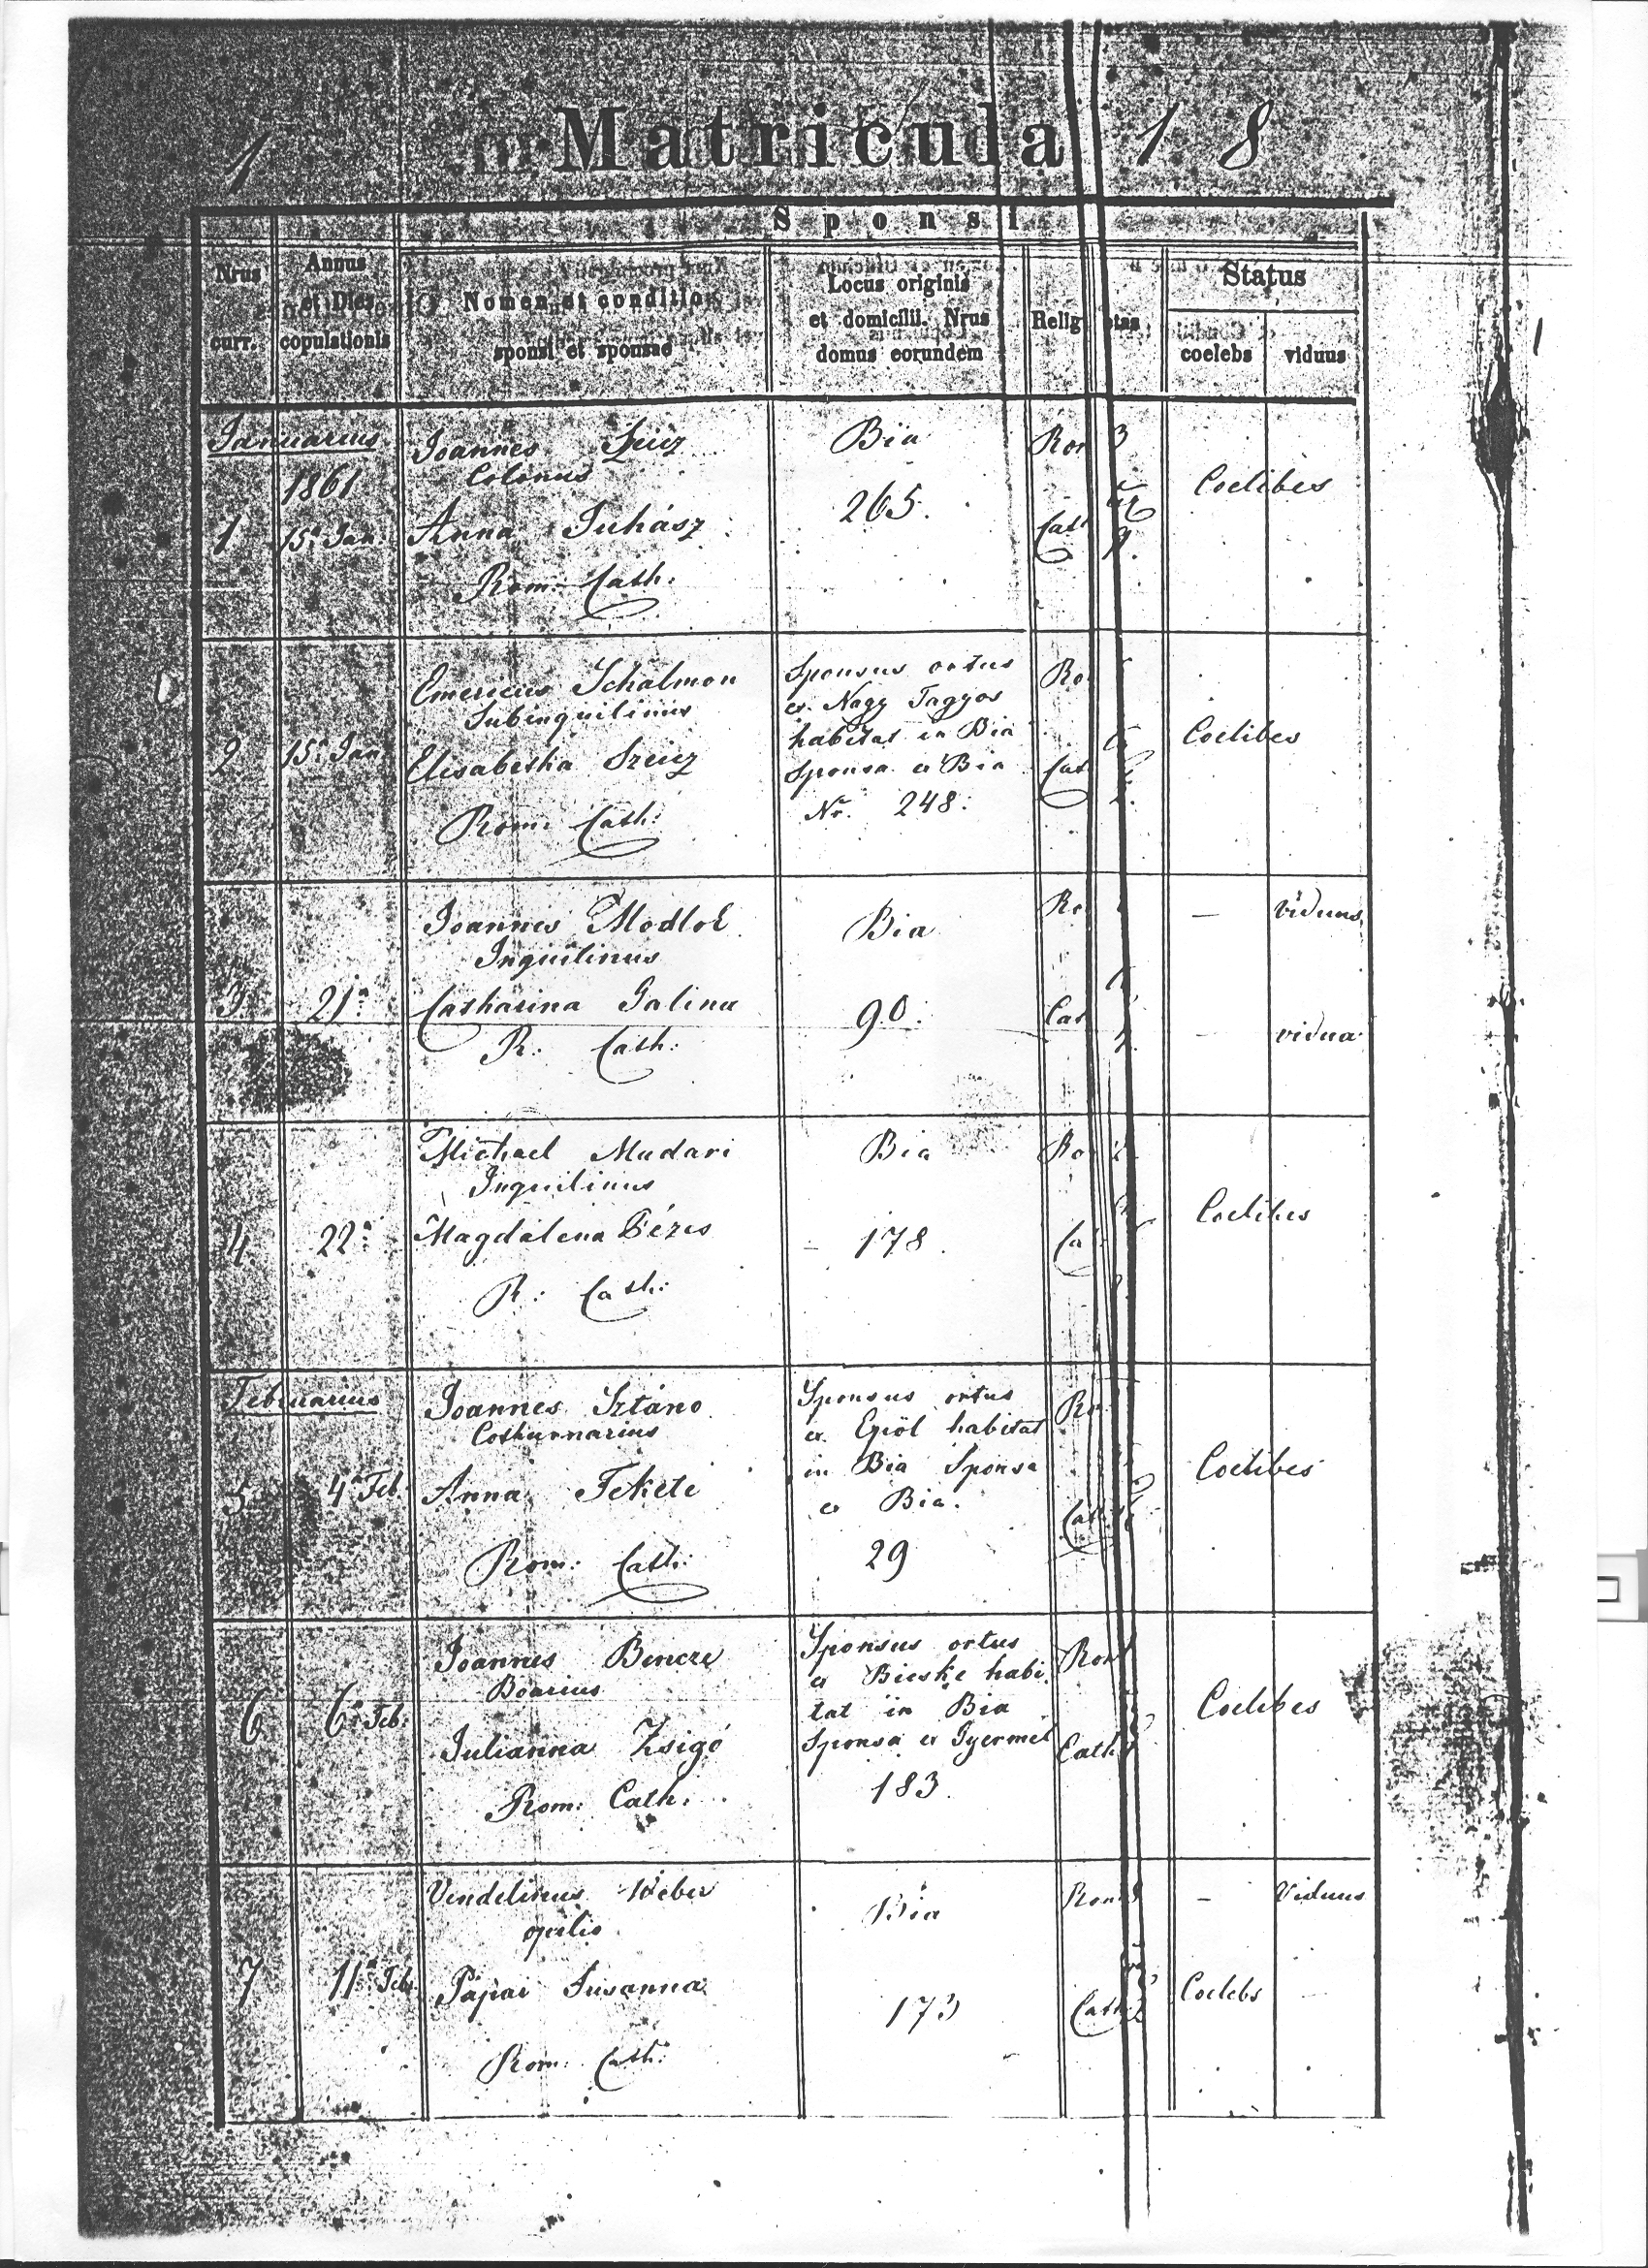 1 Matricula 18
Sponsi
Nrus curr.
Annus et Dies copulationis
Nomen et conditio
sponsi et sponsae
Locus originis
et domicilii. Nrus
domus eorundem
Relig
Status
coelebs viduus
Januarius
1861
1 15a Jan.
Joannes Szücz
Colonus
Anna Juhász
Rom: Cath.
Bia
265.
Rom
Cath
Coelibes
2 15a Jan.
Emericus Schalmon
Subinquilinus
Elisabetha Szeücz
Rom: Cath:
Sponsus ortus
ex Nagy Tagyos
habitat in Bia
Sponsa ex Bia
Nr. 248.
Ro
Cat
Coelibes
3 21a
Joannes Modlok
Inquilinus
Catharina Galina
R: Cath:
Bia
90.
Ro
Cat
– viduus
– vidua
4 22a
Michael Mudari
Inquilinus
Magdalena Bézes
R: Cath:
Bia
178.
Ro
Ca
Coelibes
Februarius
5 4a Feb
Joannes Sztáno
Cothurnarius
Anna Fekete
Rom: Cath:
Sponsus ortus
ex Epöl habitat
in Bia Sponsa
ex Bia.
29
Ro
Cat
Coelibes
6 6a Feb:
Joannes Bencze
Boarius
Julianna Zsigó
Rom: Cath.
Sponsus ortus
ex Bicske habi
tat in Bia
Sponsa ex Gyermel
183.
Rom
Cath
Coelibes
7 11a Feb
Vendelinus Weber
opilio
Pápai Susanna
Rom: Cath:
Bia
173
Rom
Cath
– Viduus
Coelebs